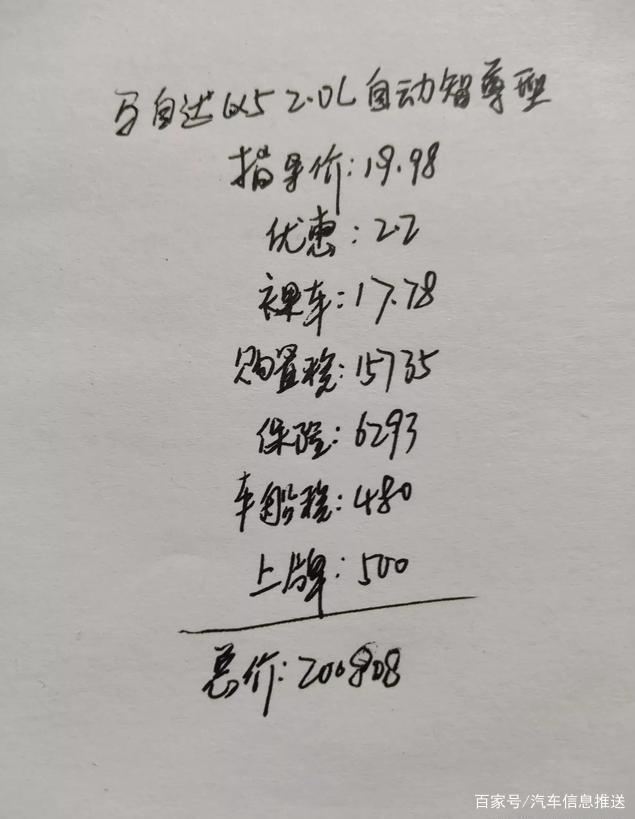 马自达CX5 2.0L自动智尊型
指导价:19.98
优惠:2.2
裸车:17.78
购置税:15735
保险:6293
车船税:480
上牌:500
总价:200808
百家号/汽车信息推送